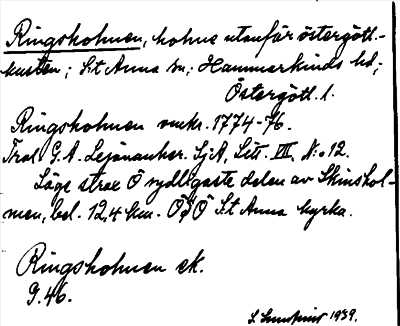 Ringsholmen, holme utanför östergötl.-
kusten; S:t Anna sn; Hammarkinds hd;
Östergötl. l.
Ringsholmen omkr. 1774-76.
Trol. G. A. Lejonanker. SjA, Litt. VII, N:o 12.
Läge strax Ö sydligaste delen av Skinshol-
men, bel. 12,4 km. OSO S:t Anna kyrka.
Ringsholmen ek.
G. 46.
1939.